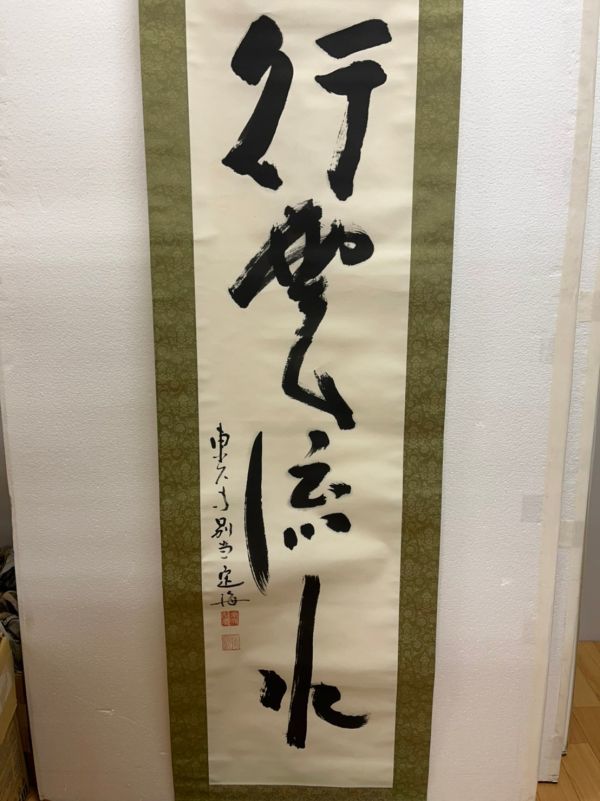 行雲流水
東大寺別当定海